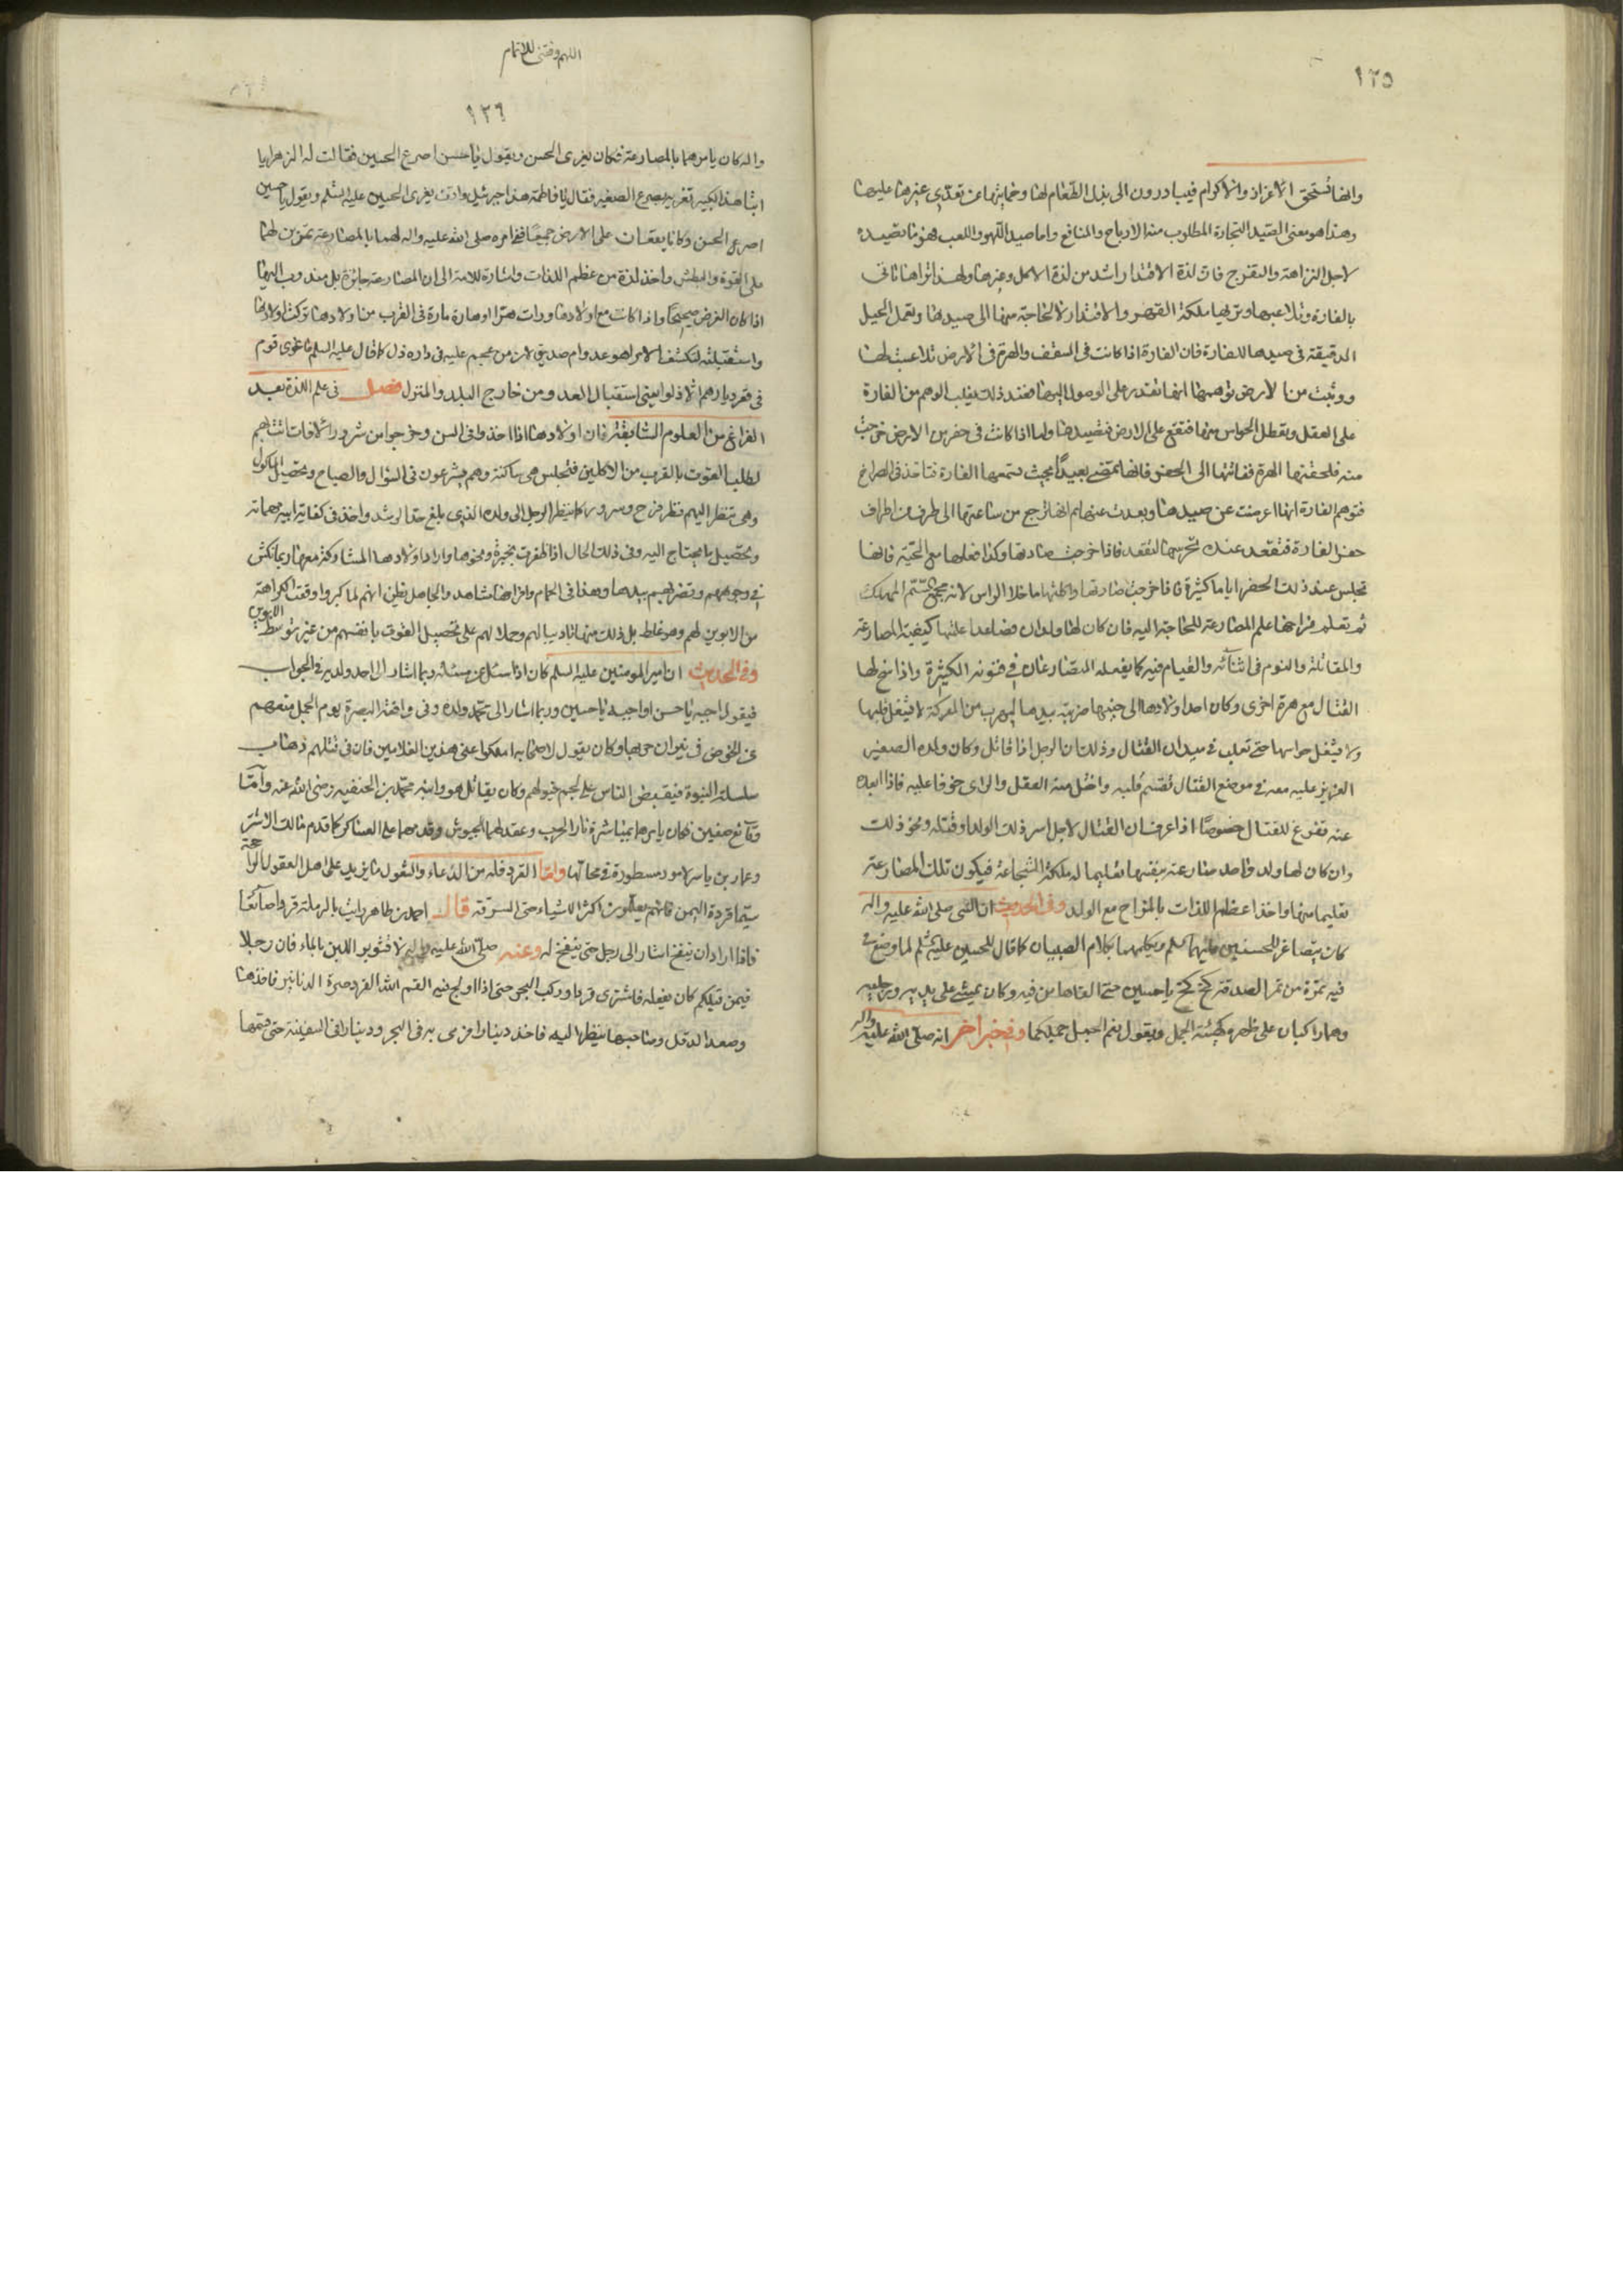 ١٢٥
وانها تستحق الاعزاز والاكرام فيبادرون الى بذل الطعام لها وحمايتها عن تعدي غيرها عليها
وهذا هو معنى الصيد التجارة المطلوب منه الارباح والمنافع واما صيد اللهو واللعب فهو ما تصيده
لاجل النزاهة والتفرج فان لذة الاقتدار اشد من لذة الاكل وغيرها ولهذا تراها تاتى
بالفارة وتلاعبها وتريها ملكة القهر والاقتدار لا لحاجة منها الى صيدها وتعمل الحيل
الدقيقة فى صيدها للفارة فان الفارة اذا كانت فى السقف والهرة فى الارض تلاعبت لها
ووثبت من الارض توهمها انها تقدر على الوصول اليها فعند ذلك يغلب الوهم من الفارة
على العقل ويعطل الحواس منها فتقع على الارض فتصيدها واما اذا كانت فى حفر من الارض خرجت
منه فلحقتها الهرة ففاتتها الى الجحر فانها تمضى بعيدا بحيث تسمعها الفارة فتاخذ فى الصراخ
فتوهم الفارة انها اعرضت عن صيدها وبعدت عنها ثم انها ترجع من ساعتها الى طرف من اطراف
حفر الفارة فتقعد عنده تحرسها لتقعد فاذا خرجت صادتها وكذا فعلها مع الحية فانها
تجلس عند ذلك الحفر اياما كثيرة فاذا خرجت صادتها واكلتها ما خلا الراس لانه مجمع السم المهلك
ثم تعلم فراخها علم المصارعة للحاجة اليه فان كان لها ولدان فصاعدا علمتها كيفية المصارعة
والمقاتلة والنوم فى اثنائه والقيام فيه كما يفعله المتصارعان في فنونه الكثيرة واذا سنح لها
القتال مع هرة اخرى وكان احد اولادها الى جنبها ضربته بيدها ليهرب من المعركة لا تشغل قلبها
ولا يشغل حواسها حتى تغلب في ميدان القتال وذلك ان الرجل اذا قاتل وكان ولده الصغير
العزيز عليه معه في موضع القتال تقسم قلبه واختل منه العقل والراى خوفا عليه فاذا ابعده
عنه تفرغ للقتال خصوصا اذا عرف ان القتال لاجل اسر ذلك الولد او قتله ونحو ذلك
وان كان لها ولد واحد صارعته بنفسها تعليما له ملكة الشجاعة فيكون تلك المصارعة
تعليما منها واخذا عظم اللذات بالمزاح مع الولد وفى الحديث ان النبى صلى الله عليه واله
كان يتصاغر للحسنين عليهما السلم ويكلمهما بكلام الصبيان كما قال للحسين عليه السلم لما وضع في
فيه تمرة من تمر الصدقة كخ كخ يا حسين حتى القاها من فيه وكان يمشي على يديه ورجليه
وهما راكبان على ظهره كهيئة الجمل ويقول نعم الجمل جملكما وفى خبر اخر انه صلى الله عليه واله
اللهم وفقنى للاتمام
١٢٦
واله كان يامرهما بالمصارعة فكان يغرى الحسن ويقول يا حسن اصرع الحسين فقالت له الزهرا يا
ابتا هذا الكبير تغريه يصرع الصغير فقال يا فاطمة هذا جبرئيل واقف يغرى الحسين عليه السلم ويقول يا حسين
اصرع الحسن وكانا يقعان على الارض جميعا ففي امره صلى الله عليه واله لهما بالمصارعة تمرين لهما
على القوة والبطش واخذ لذة من عظم اللذات واشارة للامة الى ان المصارعة جائزة بل مندوب اليها
اذا كان الغرض صحيحا واذا كانت مع اولادها ورات هرا او هارة مارة فى القرب منا ولادها تركت اولادها
واستقبلته لتكشف الامر اهو عدو ام صديق لان من هجم عليه فى داره ذل كما قال عليه السلم ما غزى قوم
فى عقر ديارهم الا ذلوا يعنى استقبال العدو من خارج البلد والمنزل فصل فى علم اللذة بعد
الفراغ من العلوم السابقة فان اولادها اذا اخذوا فى السن وخرجوا من شرور الافات تاتيهم
لطلب القوت بالقرب من الاكلين فتجلس هى ساكتة وهم يشرعون فى السؤال والصياح وتحصيل الماكول
وهى تنظر اليهم نظر فرح وسرور كما ينظر الرجل الى ولده الذي بلغ حد الرشد واخذ فى كفاية ابيه مهماته
وتحصيل ما يحتاج اليه وفى ذلك الحال اذا ظفرت بخبزة ونحوها واراد اولادها المشاركة معها ربما تكش
في وجوههم وتضربهم بيدها وهذا فى الحمام وافراخها مشاهد والجاهل يظن انهم لما كبروا وقعت الكراهة
من الابوين لهم وهو غلط بل ذلك منها تاديبا لهم وحملا لهم على تحصيل القوت بانفسهم من غير توسط الابوين
وفى الحديث ان امير المومنين عليه السلم كان اذا سئل عن مسئلة ربما اشار الى احد ولديه في الجواب
فيقول اجبه يا حسن او اجبه يا حسين وربما اشار الى محمد ولده وفى واقعة البصرة يوم الجمل منعهم
عن الخوض فى نيران حربها وكان يقول لاصحابه املكوا عنى هذين الغلامين فان فى قتلهم ذهاب
سلسلة النبوة فيقبض الناس على لجم خيولهم وكان يقاتل هو وابنه محمد بن الحنفيه رضى الله عنه واما
وقايع صفين فكان يامرهما بمباشرة نار الحرب وعقد لهما الجيوش وقدمهما على العساكر كما قدم مالك الاشتر
وعمار بن ياسر لامور مسطورة في محالها واما القرد فله من الدهاء والعقول ما يزيد على اهل العقول الراجحة
سيما قردة اليمن فانهم يعلمون اكثر الاشياء حتى السرقة قال احمد بن طاهر رايت بالرملة قردا صائغا
فاذا اراد ان ينفخ اشار الى رجل حتى ينفخ له وعنه صلى الله عليه واله لا تشوبوا اللبن بالماء فان رجلا
فيمن قبلكم كان يفعله فاشترى قردا وركب البحر حتى اذا اولج فيه القم الله القرد صرة الدنانير فاخذها
وصعد الدقل وصاحبها ينظر اليه فاخذ دينارا فرمى به فى البحر ودينارا فى السفينة حتى قسمها